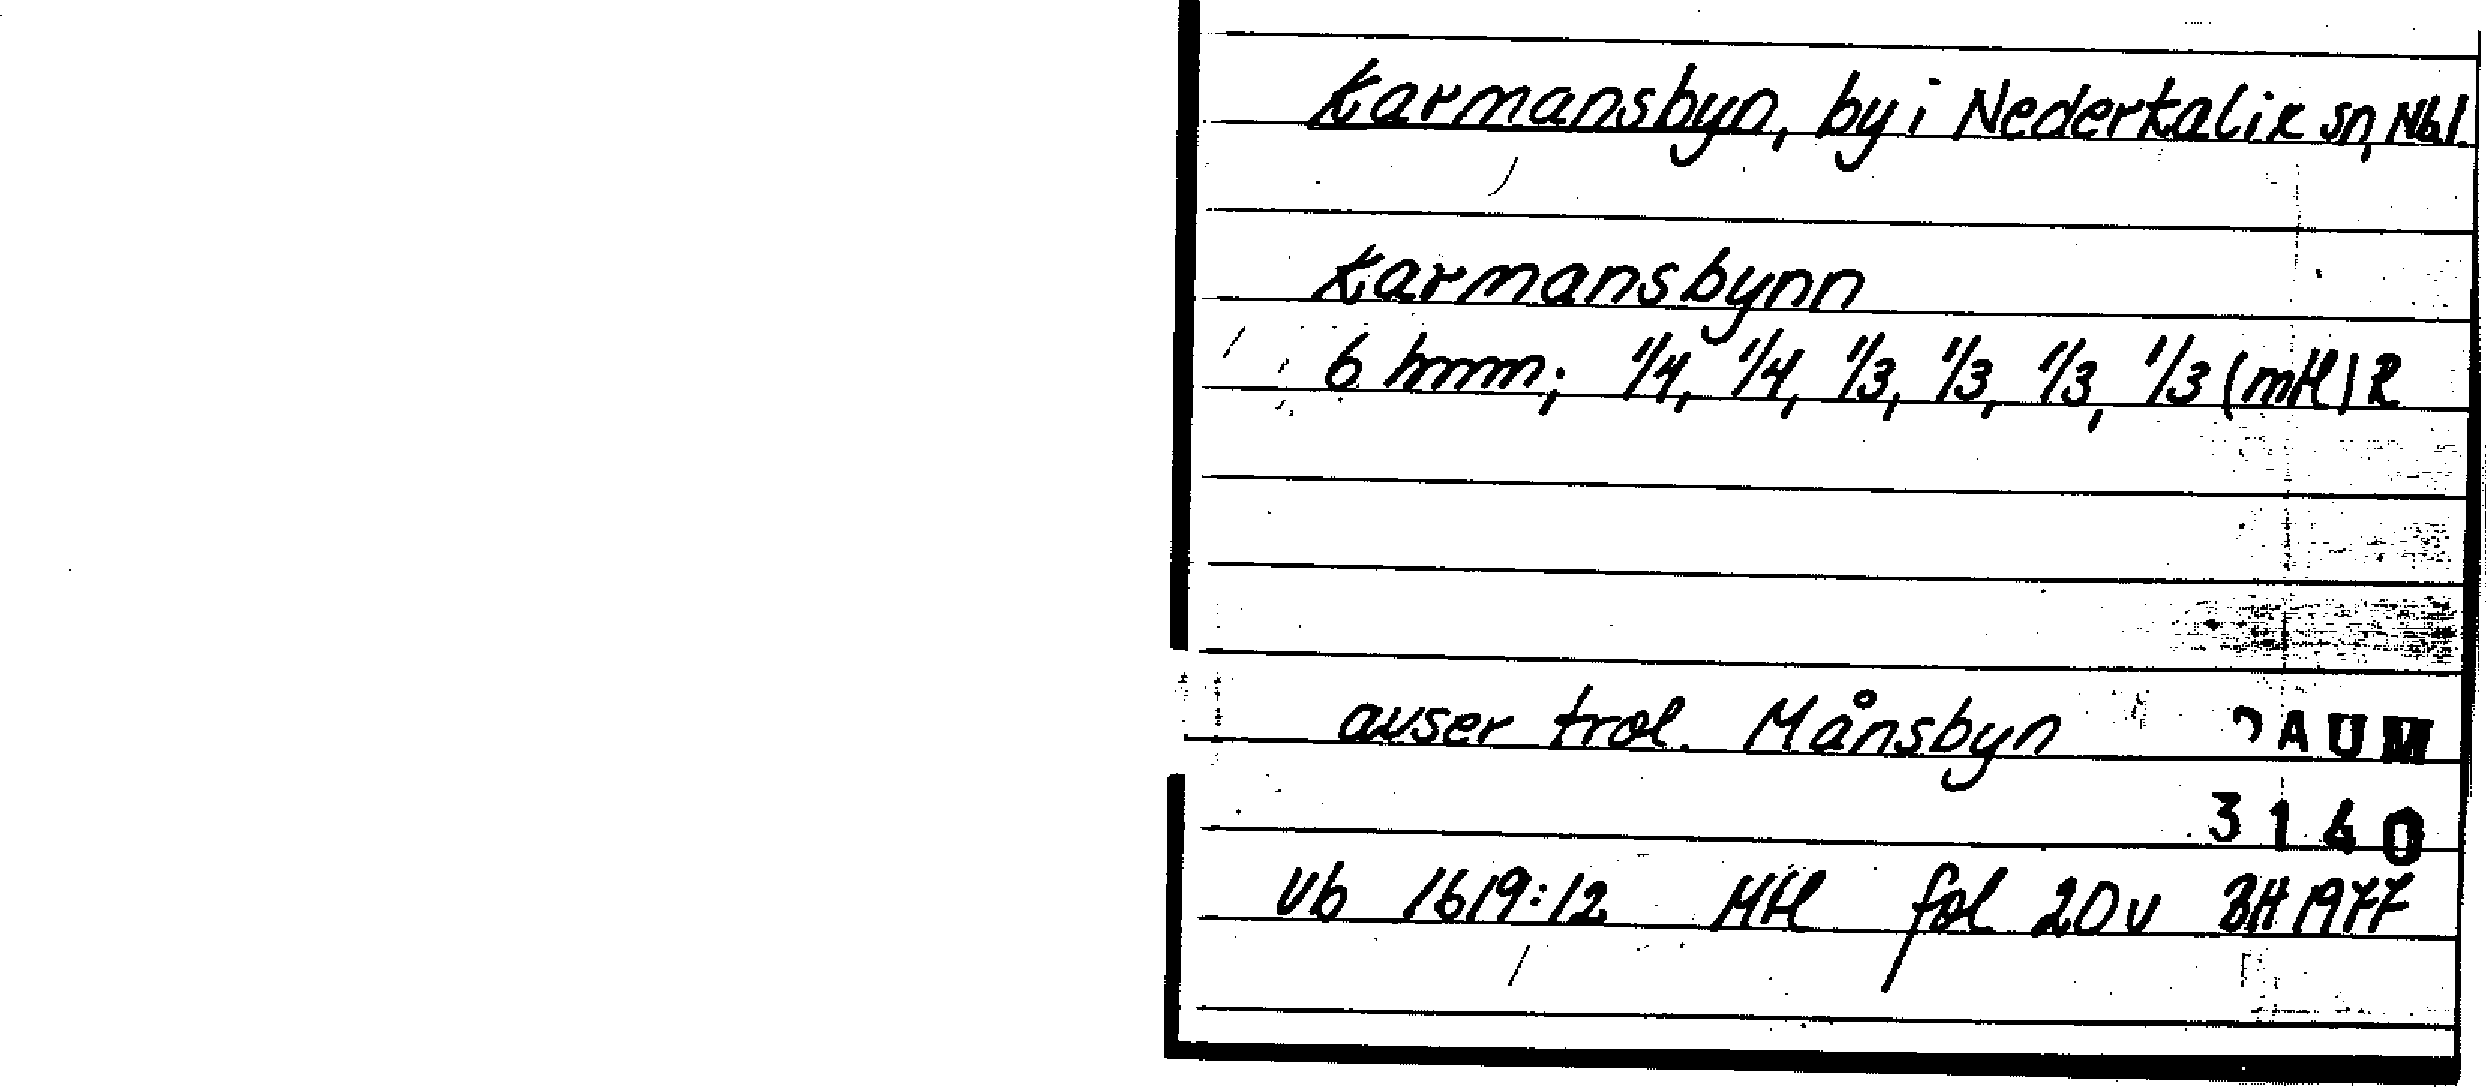 Karmansbyn, by i Nederkalix sn, Nbl.
Karmansbynn
6 hmm; 1/4, 1/4, 1/3, 1/3, 1/3, 1/3 (mtl) R
avser trol. Månsbyn DAUM
3140
Vb 1619:12 Mtl fol 20v BH 1977